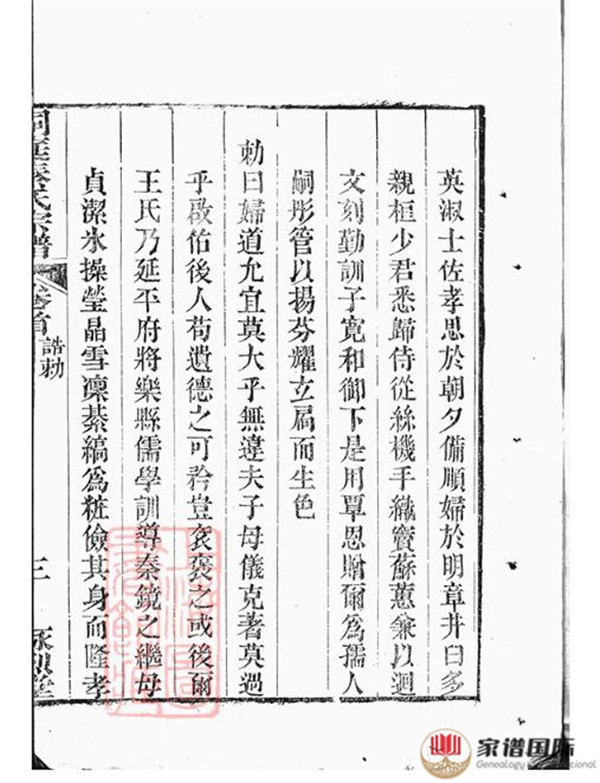 英淑士佐孝思於朝夕備順婦於明章井臼多
親桓少君悉歸侍從絲機手織竇蘇蕙兼以迴
文刻勤訓子寬和御下是用覃恩贈爾為孺人
嗣彤管以揚芬耀立扄而生色
勅曰婦道允宜莫大乎無違夫子母儀克著莫過
乎啟佑後人苟遺德之可矜豈袞褒之或後爾
王氏乃延平府將樂縣儒學訓導秦鏡之繼母
貞潔氷操瑩晶雪凜綦縞為粧儉其身而隆孝
洞庭秦氏宗譜
卷首
誥勅
三
家谱国际
Genealogy International